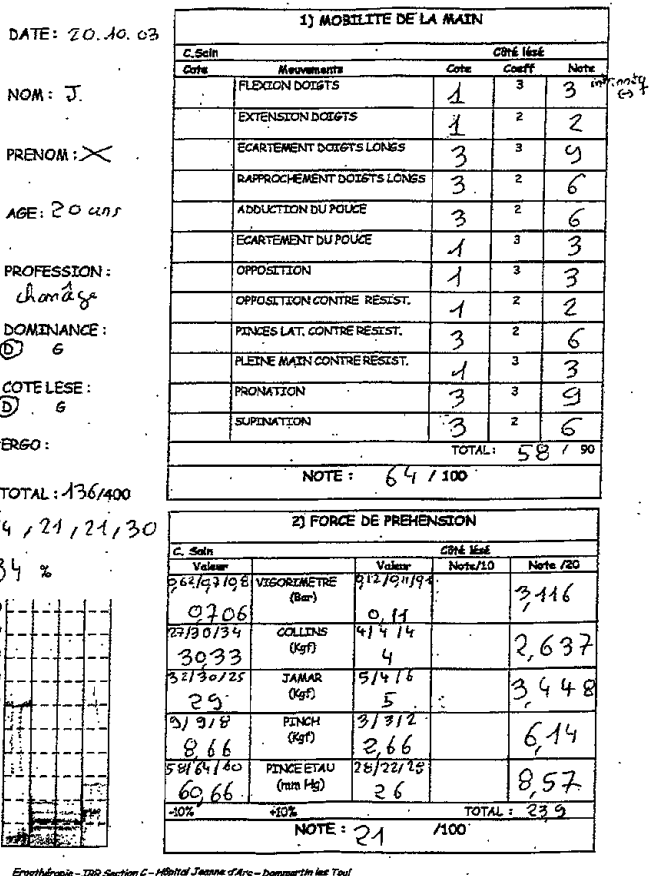 DATE: 20.10.03
NOM: J.
PRENOM:
AGE: 20 ans
PROFESSION:
chomâge
DOMINANCE:
D G
COTE LESE:
D . G
ERGO:
TOTAL: 136/400
4, 21, 21, 30
34 %
1) MOBILITE DE LA MAIN
C.Sain Côté lésé
Cote Mouvements Cote Coeff Note
FLEXION DOIGTS 1 3 3
EXTENSION DOIGTS 1 2 2
ECARTEMENT DOIGTS LONGS 3 3 9
RAPPROCHEMENT DOIGTS LONGS 3 2 6
ADDUCTION DU POUCE 3 2 6
ECARTEMENT DU POUCE 1 3 3
OPPOSITION 1 3 3
OPPOSITION CONTRE RESIST. 1 2 2
PINCES LAT. CONTRE RESIST. 3 2 6
PLEINE MAIN CONTRE RESIST. 1 3 3
PRONATION 3 3 9
SUPINATION 3 2 6
TOTAL: 58 / 90
NOTE : 64 / 100
2) FORCE DE PREHENSION
C. Sain Côté lésé
Valeur Valeur Note/10 Note /20
0,62/0,7/0,8 VIGORIMETRE
(Bar) 3,116
0,706 0,11
27/30/34 COLLINS 4/4/4
(Kgf) 2,637
30,33 4
32/30/25 JAMAR 5/4/6
(Kgf) 3,448
29 5
9/9/8 PINCH 3/3/2
(Kgf) 6,14
8,66 2,66
58/64/60 PINCE ETAU 28/22/28
(mm Hg) 8,57
60,66 26
-10% +10% TOTAL : 23,9
NOTE : 21 /100
Ergothérapie - IRR Section C - Hôpital Jeanne d'Arc - Dommartin les Toul